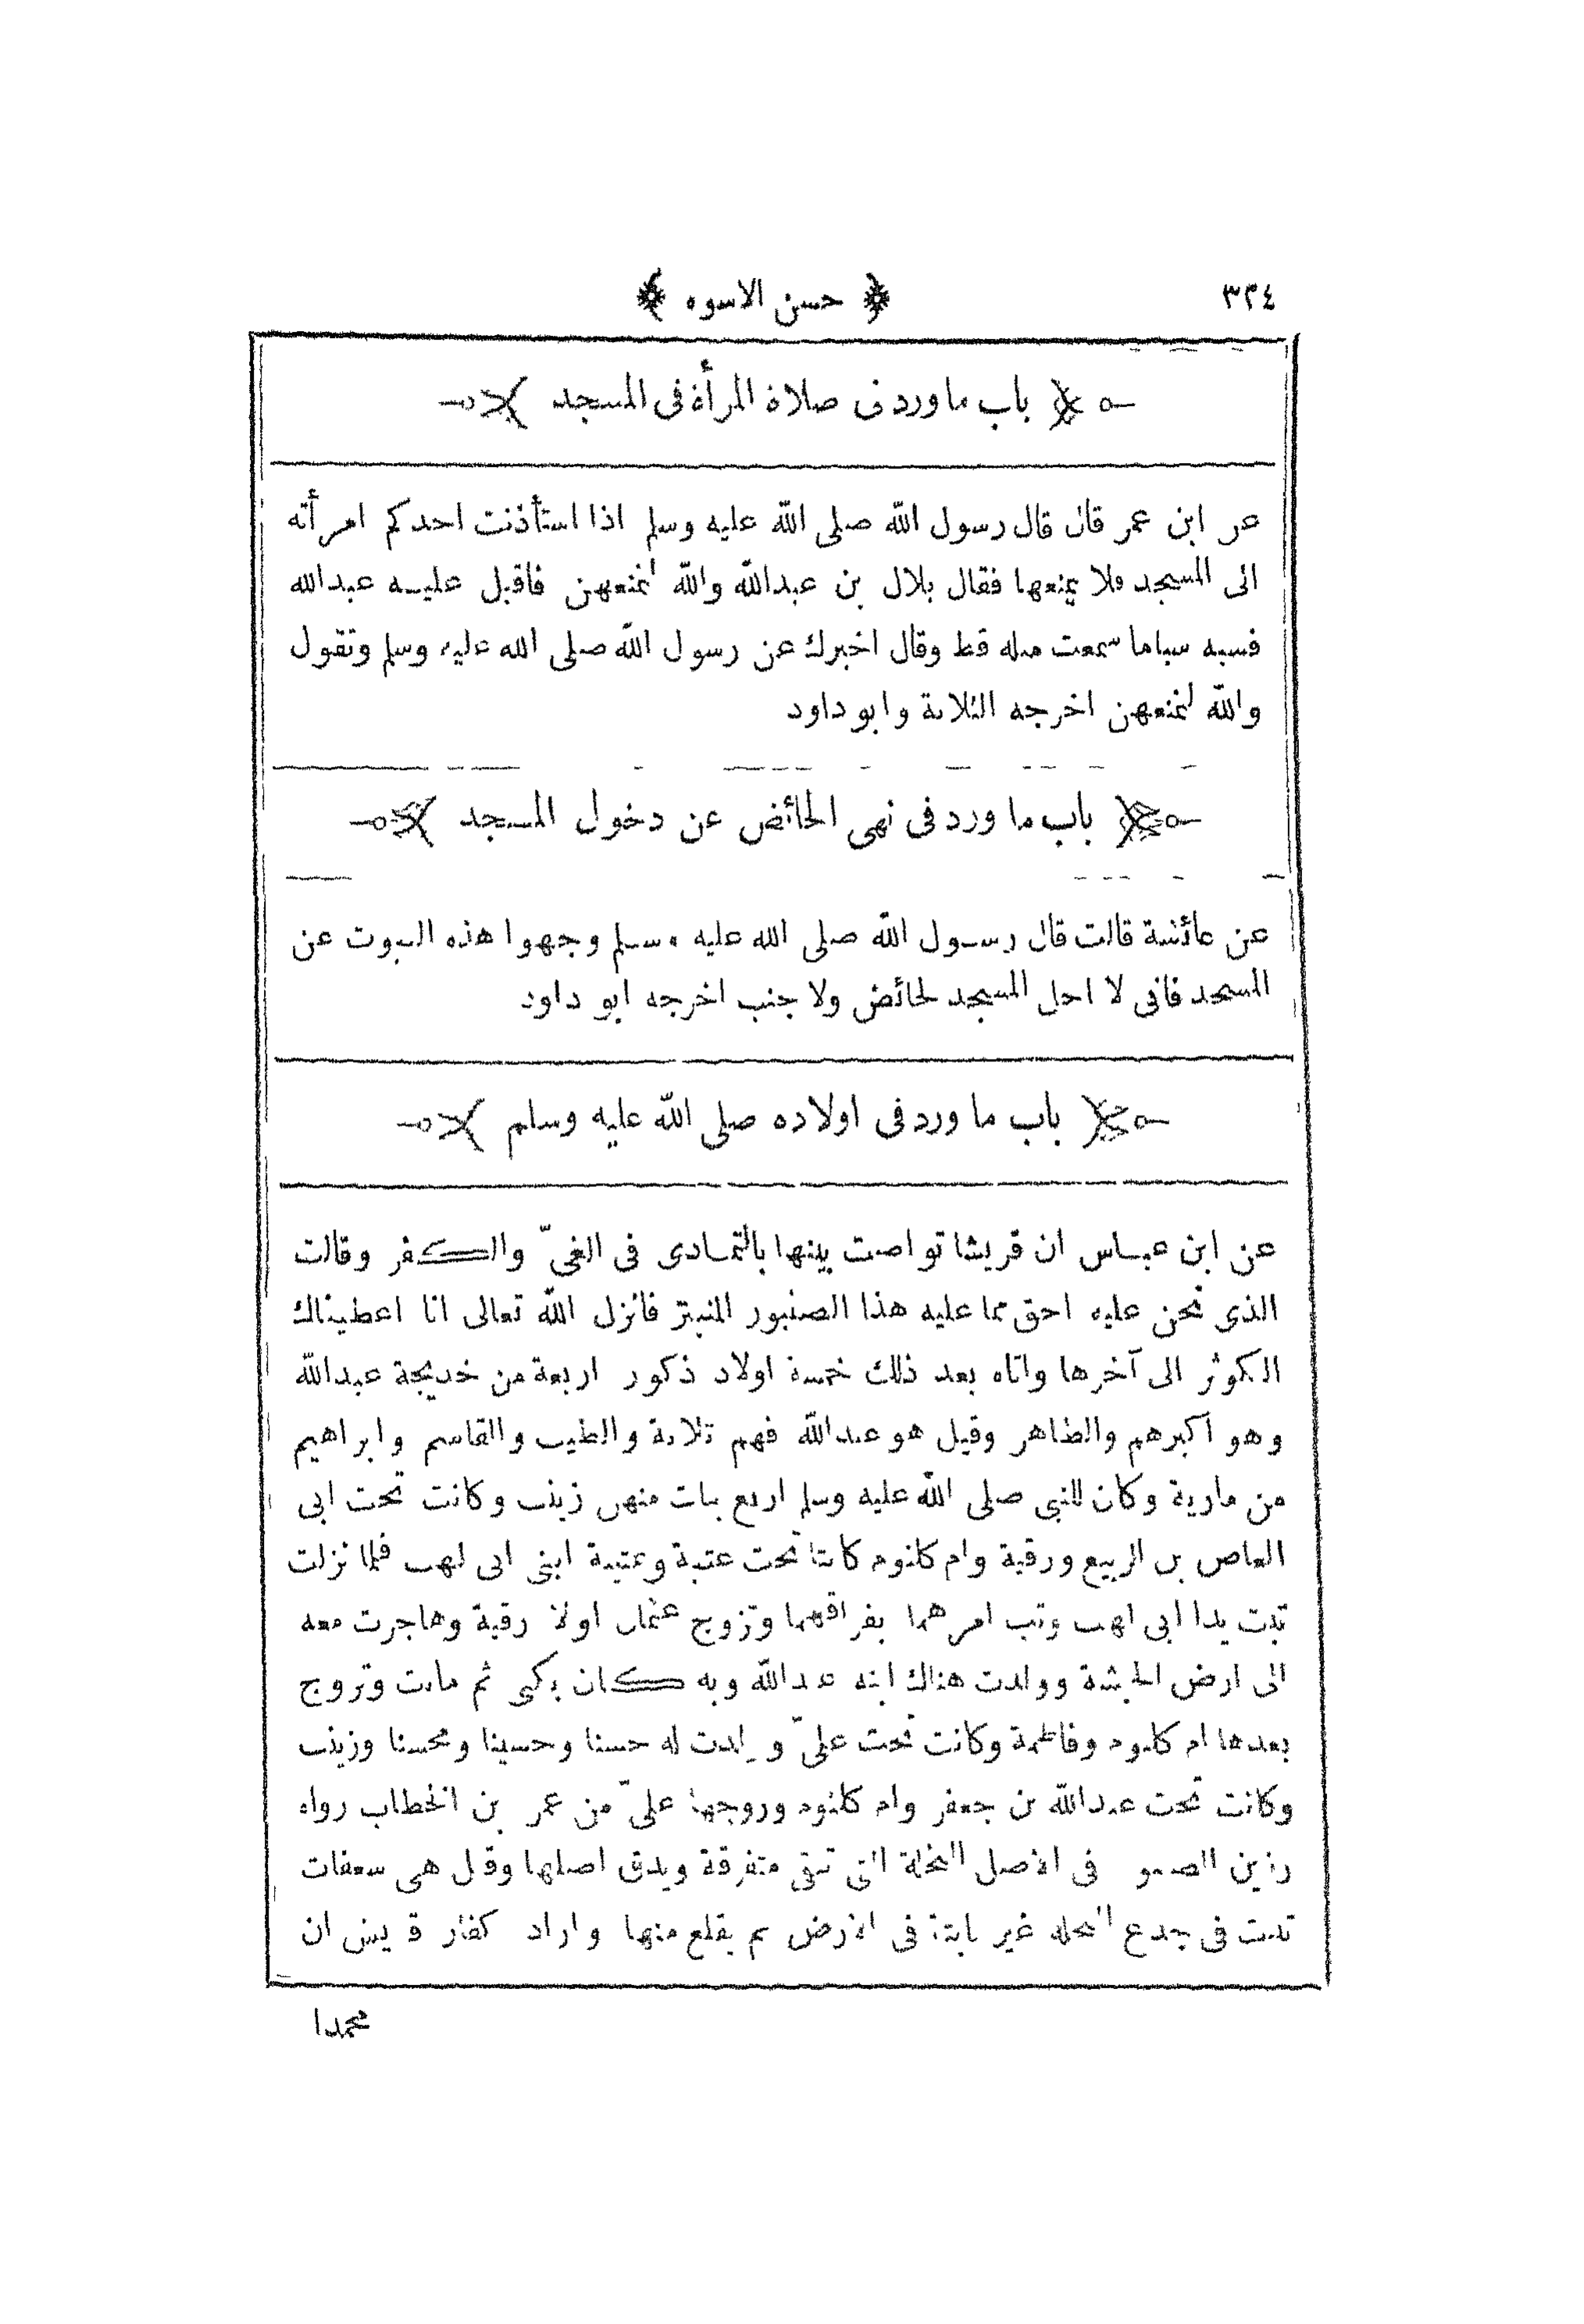 ٣٣٤
﴿ حسن الاسوه ﴾
باب ما ورد فى صلاة المرأة فى المسجد
عن ابن عمر قال قال رسول الله صلى الله عليه وسلم اذا استأذنت احدكم امرأته
الى المسجد فلا يمنعها فقال بلال بن عبدالله والله لنمنعهن فاقبل عليه عبدالله
فسبه سبا ما سمعت مثله قط وقال اخبرك عن رسول الله صلى الله عليه وسلم وتقول
والله لنمنعهن اخرجه الثلاثة وابو داود
باب ما ورد فى نهى الحائض عن دخول المسجد
عن عائشة قالت قال رسول الله صلى الله عليه وسلم وجهوا هذه البيوت عن
المسجد فانى لا احل المسجد لحائض ولا جنب اخرجه ابو داود
باب ما ورد فى اولاده صلى الله عليه وسلم
عن ابن عباس ان قريشا تواصت بينها بالتمادى فى الغىّ والكفر وقالت
الذى نحن عليه احق مما عليه هذا الصنبور المنبتر فانزل الله تعالى انا اعطيناك
الكوثر الى آخرها واتاه بعد ذلك خمسة اولاد ذكور اربعة من خديجة عبدالله
وهو اكبرهم والطاهر وقيل هو عبدالله فهم ثلاثة والطيب والقاسم وابراهيم
من مارية وكان للنبى صلى الله عليه وسلم اربع بنات منهن زينب وكانت تحت ابى
العاص بن الربيع ورقية وام كلثوم كانتا تحت عتبة وعتيبة ابنى ابى لهب فلما نزلت
تبت يدا ابى لهب وتب امرهما بفراقهما وتزوج عثمان اولا رقية وهاجرت معه
الى ارض الحبشة وولدت هناك ابنه عبدالله وبه كان يكنى ثم ماتت وتزوج
بعدها ام كلثوم وفاطمة وكانت تحت علىّ وولدت له حسنا وحسينا ومحسنا وزينب
وكانت تحت عبدالله بن جعفر وام كلثوم وزوجها علىّ من عمر بن الخطاب رواه
رزين الصنبور فى الاصل النخلة التى تبقى متفرقة ويدق اصلها وقيل هى سعفات
تنبت فى جذع النخلة غير ثابتة فى الارض ثم يقلع منها واراد كفار قريش ان
محمدا